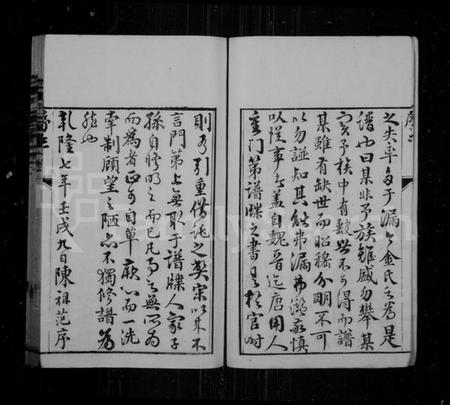 之失卒多于漏今金氏之為是
譜也曰某非予族雖盛勿舉某
實予族中有數世不可得而譜
某雖有缺世而昭穆分明不可
以勿誌知其能弗漏弗濫敬慎
以從事者蓋自魏晉迄唐用人
重門第譜牒之書是於官時
則有引重借託之弊宋以來不
言門第上無取于譜牒人家子
孫自為明之而已凡為之無所為
而為者正可自單厥心而一洗
牽制顧望之陋亦不獨修譜為
然也
乾隆七年壬戌九日陳祖范序